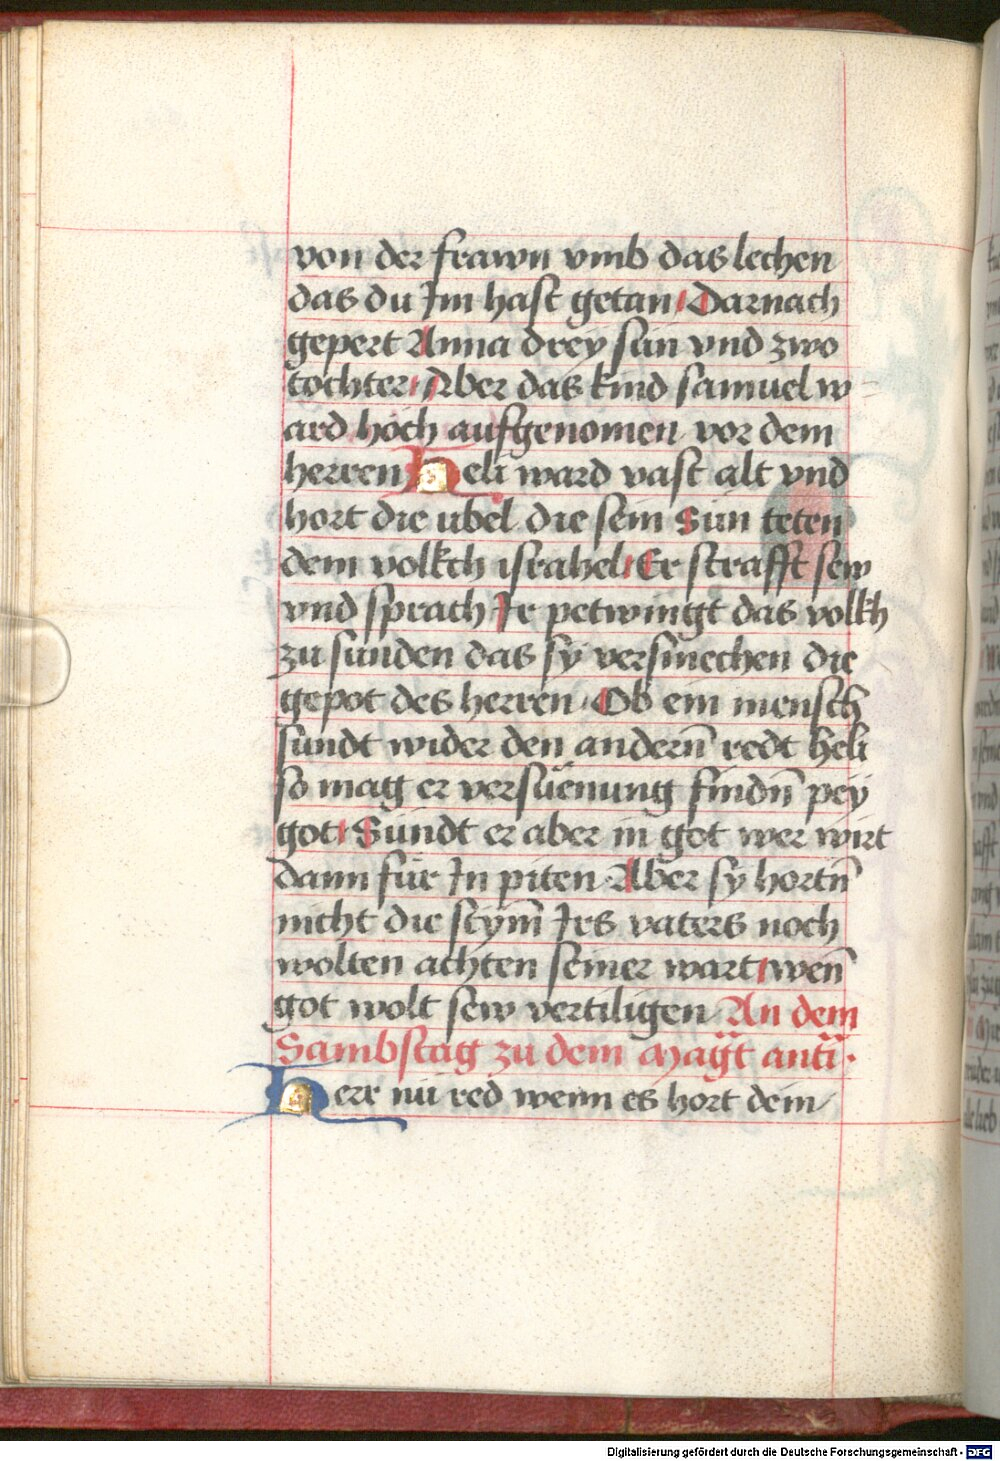 von der frawn vmb das lechen
das du Im hast getan Darnach
gepert Anna drey sün vnd zwo
tochter Aber das kind samuel w
ard hoch aufgenomen vor dem
herren Heli ward vast alt vnd
hort die übel die sein Sün teten
dem volkch israhel Er strafft sew
vnd sprach Ir petwingt das volkh
zu sünden das sy versmechen die
gepot des herren Ob ein mensch
sündt wider den andern̄ redt heli
so mag er versüenung findn̄ pey
got Sündt er aber in got wer wirt
dann für In piten Aber sy hortn̄
nicht die stym̄ Irs vaters noch
wolten achten seiner wart wen̄
got wolt sew vertiligen An dem
Sambstag zu dem Magt anti·
Herr nü red wenn es hort dein
Digitalisierung gefördert durch die Deutsche Forschungsgemeinschaft - DFG